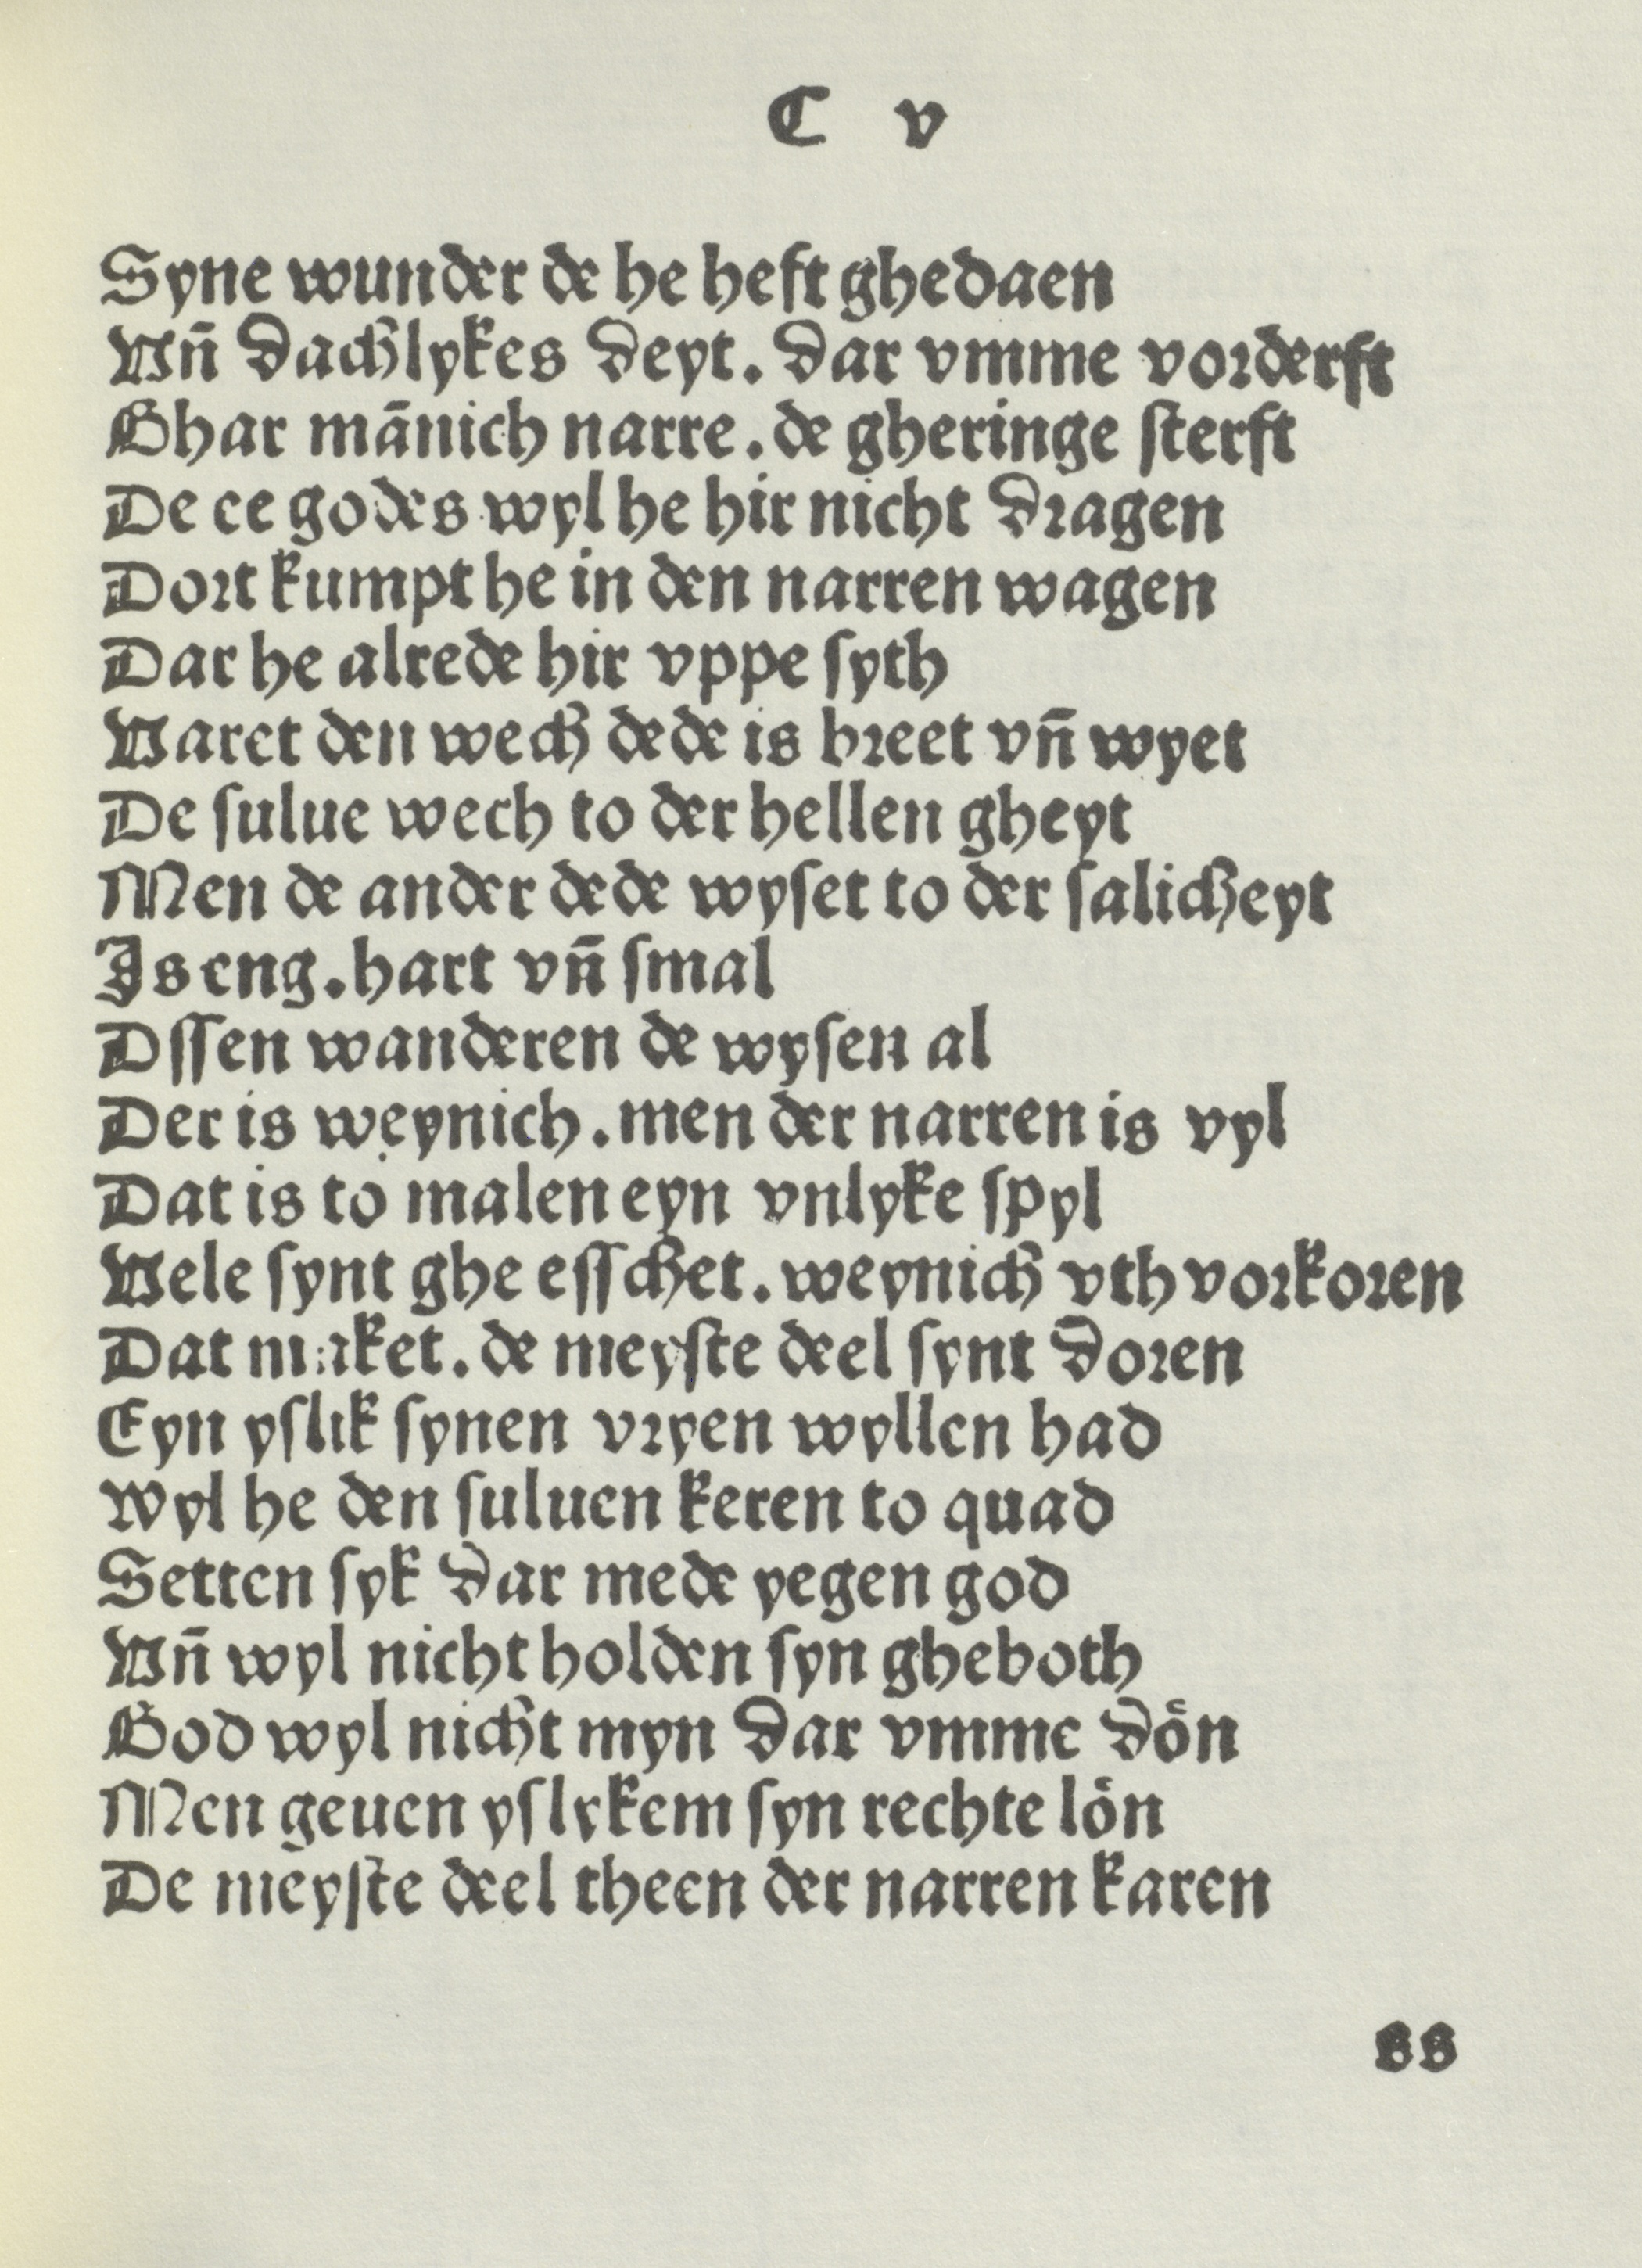 C v
Syne wunder de he heft ghedaen
Vn̄ dachlykes deyt. dar vmme vorderft
Ghar mānich narre. de gheringe sterft
De ee godes wyl he hir nicht dragen
Dort kumpt he in den narren wagen
Dar he alrede hir vppe syth
Varet den wech dede is breet vn̄ wyet
De sulue wech to der hellen gheyt
Men de ander dede wyset to der salicheyt
Is eng. hart vn̄ smal
Dssen wanderen de wysen al
Der is weynich. men der narren is vyl
Dat is to malen eyn vnlyke spyl
Vele synt ghe esschet. weynich vth vorkoren
Dat maket. de meyste deel synt doren
Eyn yslik synen vryen wyllen had
Wyl he den suluen keren to quad
Setten syk dar mede yegen god
Vn̄ wyl nicht holden syn gheboth
God wyl nicht myn dar vmme doͤn
Men geuen yslykem syn rechte loͤn
De meyste deel theen der narren karen
ss